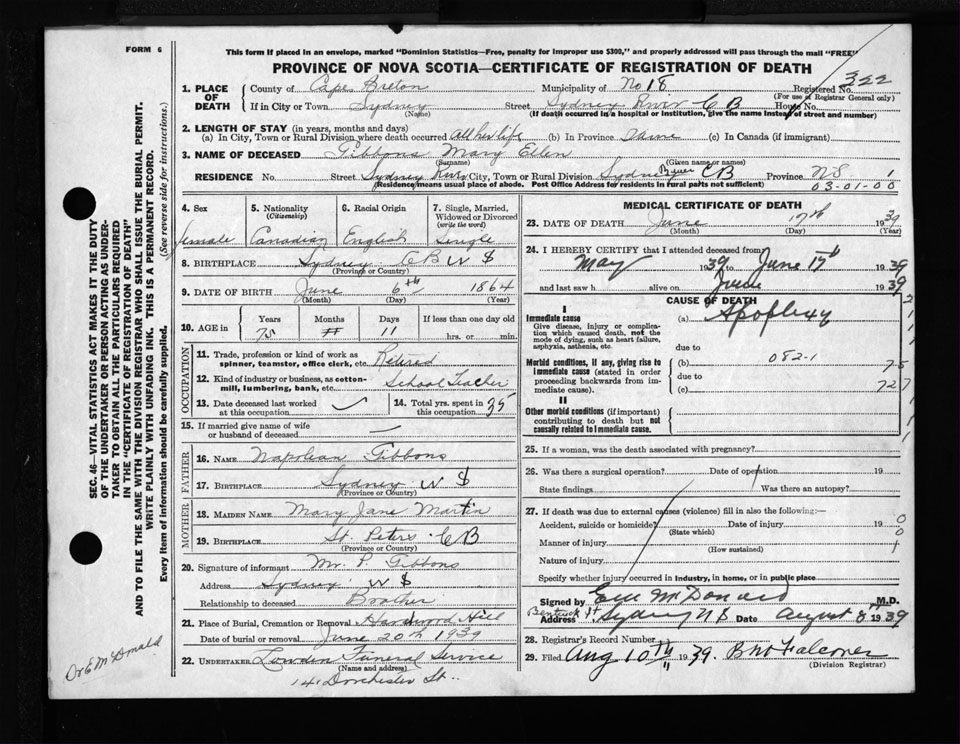 FORM 6
This form if placed in an envelope, marked "Dominion Statistics—Free, penalty for improper use $300," and properly addressed will pass through the mail "FREE"
PROVINCE OF NOVA SCOTIA—CERTIFICATE OF REGISTRATION OF DEATH
1. PLACE OF DEATH
County of Cape Breton Municipality of No 18 Registered No. 322
(For use of Registrar General only)
If in City or Town Sydney Street Sydney River C B House No.
(Name) (If death occurred in a hospital or institution, give the name instead of street and number)
2. LENGTH OF STAY (in years, months and days)
(a) In City, Town or Rural Division where death occurred All her life (b) In Province Same (c) In Canada (if immigrant)
3. NAME OF DECEASED Gibbons Mary Ellen
(Surname) (Given name or names)
RESIDENCE No. Street Sydney River City, Town or Rural Division Sydney River CB Province N S 1
(Residence means usual place of abode. Post Office Address for residents in rural parts not sufficient) 03-01-00
4. Sex 5. Nationality (Citizenship) 6. Racial Origin 7. Single, Married, Widowed or Divorced (write the word)
female Canadian English Single
8. BIRTHPLACE Sydney C B N S
(Province or Country)
9. DATE OF BIRTH June 6th 1864
(Month) (Day) (Year)
10. AGE in Years Months Days If less than one day old
75 11 hrs. or min.
OCCUPATION
11. Trade, profession or kind of work as spinner, teamster, office clerk, etc. Retired
12. Kind of industry or business, as cotton-mill, lumbering, bank, etc. School Teacher
13. Date deceased last worked at this occupation 14. Total yrs. spent in this occupation 35
15. If married give name of wife or husband of deceased —
FATHER
16. NAME Napolean Gibbons
17. BIRTHPLACE Sydney N S
(Province or Country)
MOTHER
18. MAIDEN NAME Mary Jane Martin
19. BIRTHPLACE St. Peters C B
(Province or Country)
20. Signature of informant Mr. P. Gibbons
Address Sydney N S
Relationship to deceased Brother
21. Place of Burial, Cremation or Removal Hardwood Hill
Date of burial or removal June 20th 1939
22. UNDERTAKER Lowden Funeral Service
(Name and address)
141 Dorchester St.
MEDICAL CERTIFICATE OF DEATH
23. DATE OF DEATH June 17th 1939
(Month) (Day) (Year)
24. I HEREBY CERTIFY that I attended deceased from
May 1939 to June 17th 1939
and last saw h alive on June 1939
CAUSE OF DEATH
I
Immediate cause (a) Apoplexy
Give disease, injury or complication which caused death, not the mode of dying, such as heart failure, asphyxia, asthenia, etc.
due to
Morbid conditions, if any, giving rise to immediate cause (stated in order proceeding backwards from immediate cause).
(b) 082-1 75
due to
(c) 727
II
Other morbid conditions (if important) contributing to death but not causally related to immediate cause.
25. If a woman, was the death associated with pregnancy?
26. Was there a surgical operation? Date of operation 19
State findings Was there an autopsy?
27. If death was due to external causes (violence) fill in also the following:—
Accident, suicide or homicide? Date of injury 19 0
(State which)
Manner of injury 0
(How sustained)
Nature of injury 1
Specify whether injury occurred in industry, in home, or in public place
Signed by M. Donald M.D.
Address Bentinck St Sydney N S Date August 8th 1939
28. Registrar's Record Number
29. Filed Aug 10th 1939. Falconer
(Division Registrar)
SEC. 46—VITAL STATISTICS ACT MAKES IT THE DUTY
OF THE UNDERTAKER OR PERSON ACTING AS UNDER-
TAKER TO OBTAIN ALL THE PARTICULARS REQUIRED
IN THE "CERTIFICATE OF REGISTRATION OF DEATH"
AND TO FILE THE SAME WITH THE DIVISION REGISTRAR WHO SHALL ISSUE THE BURIAL PERMIT.
WRITE PLAINLY WITH UNFADING INK. THIS IS A PERMANENT RECORD.
Every item of information should be carefully supplied. (See reverse side for instructions.)
Dr E McDonald